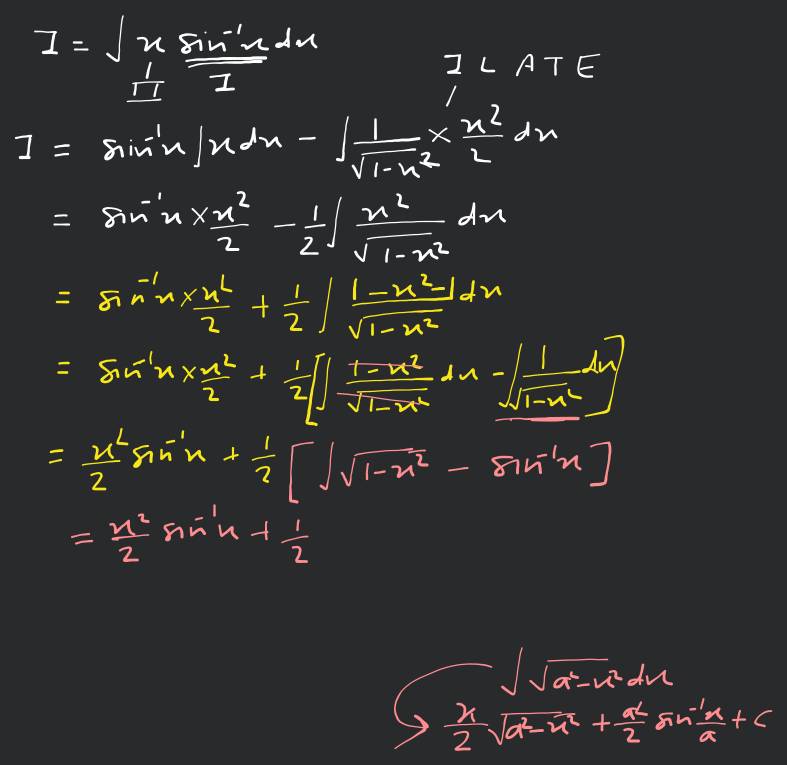 I = ∫ x sin⁻¹x dx
II I
I L A T E
I = sin⁻¹x ∫x dx − ∫ 1/√(1−x²) × x²/2 dx
= sin⁻¹x × x²/2 − 1/2 ∫ x²/√(1−x²) dx
= sin⁻¹x × x²/2 + 1/2 ∫ (1−x²−1)/√(1−x²) dx
= sin⁻¹x × x²/2 + 1/2 [∫ (1−x²)/√(1−x²) dx − ∫ 1/√(1−x²) dx]
= x²/2 sin⁻¹x + 1/2 [∫√(1−x²) − sin⁻¹x]
= x²/2 sin⁻¹x + 1/2
∫√(a²−x²) dx
x/2 √(a²−x²) + a²/2 sin⁻¹ x/a + C